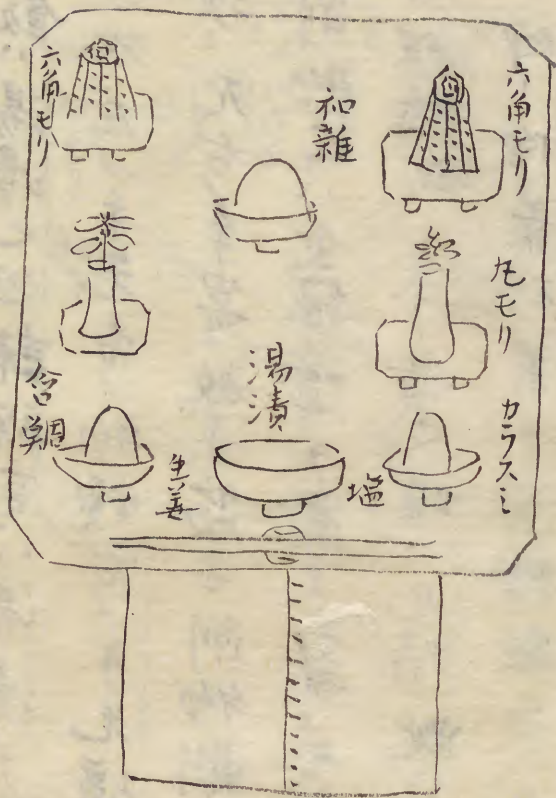 六角モリ
和雜
六角モリ
丸モリ
カラスミ
湯漬
塩
生姜